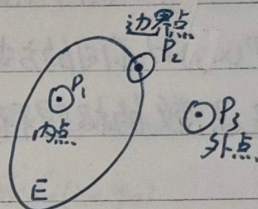 边界点
P₂
P₁
内点
P₃
外点
E